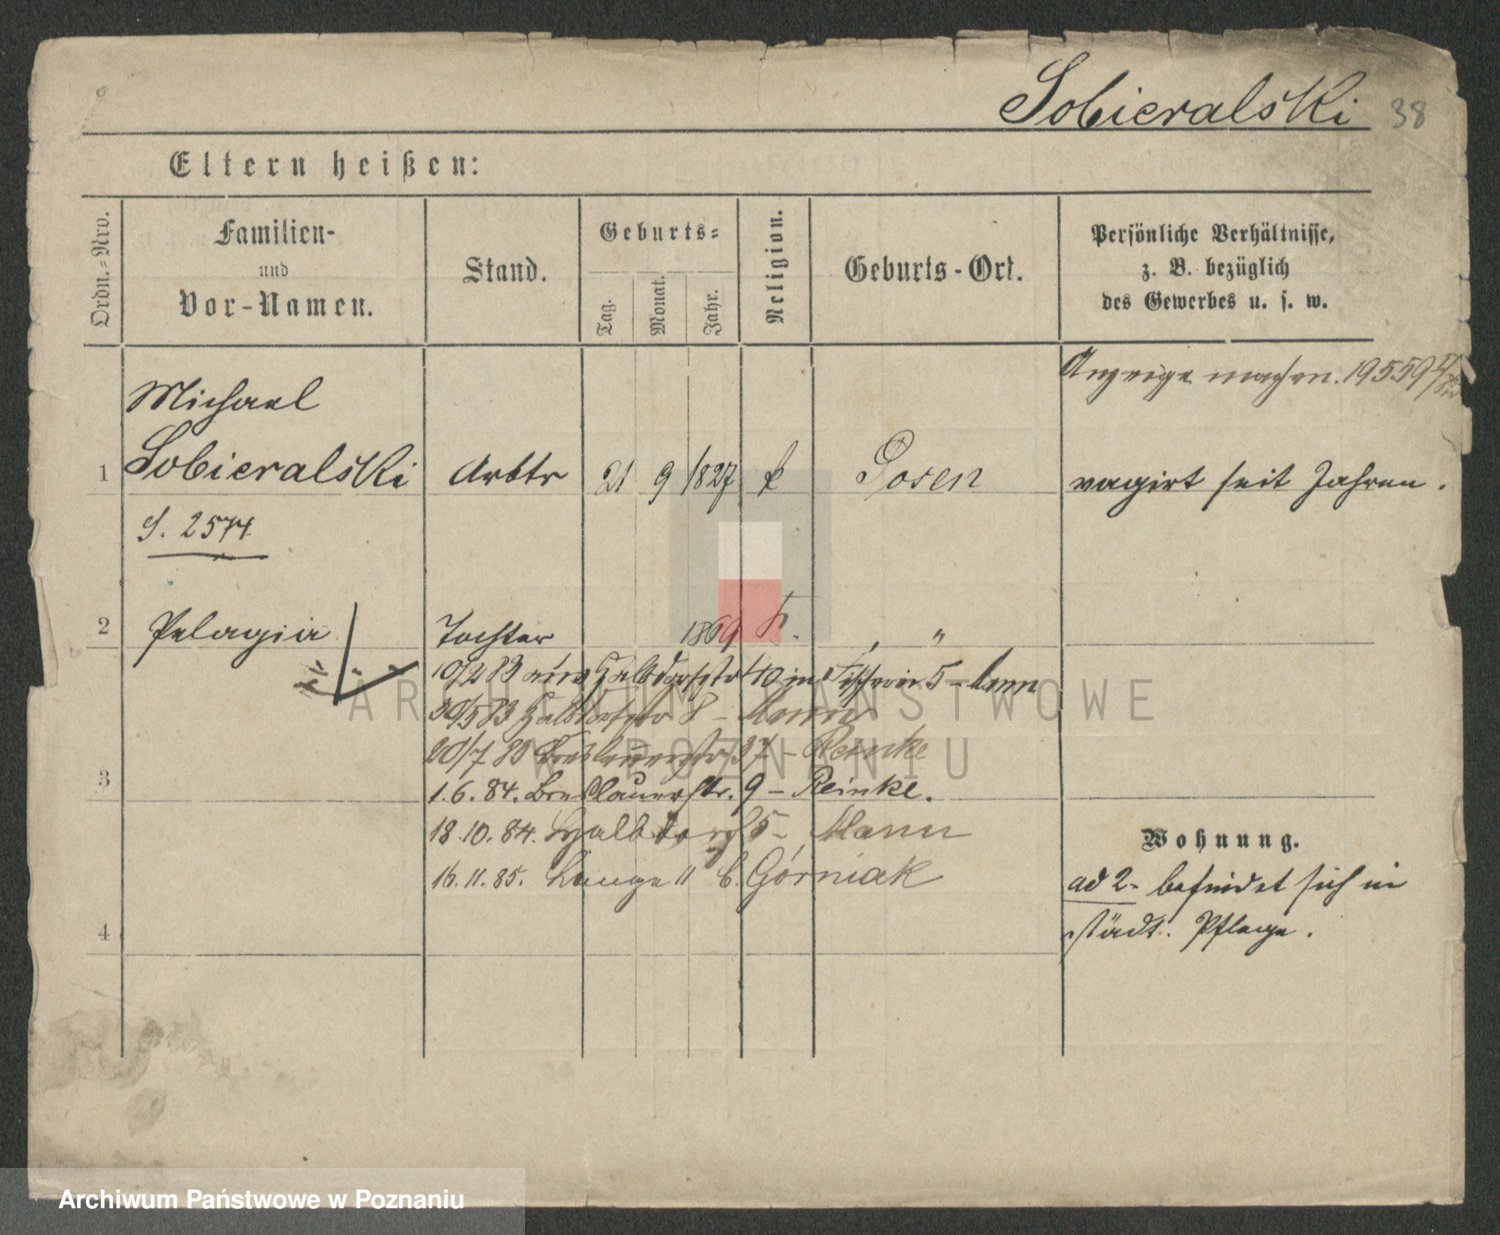 Sobieralski 38
Eltern heißen:
Ordn.-Nro.
Familien-
und
Vor-Namen.
Stand.
Geburts-
Tag.
Monat.
Jahr.
Religion.
Geburts-Ort.
Persönliche Verhältnisse,
z. B. bezüglich
des Gewerbes u. s. w.
Anzeige machen. 19559
Michael
1 Sobieralski Arbtr 21 9 1827 k Posen vagirt seit Jahren.
S. 2574
2 Pelagia Tochter 1869 k. " "
10/2 83 10 5 - Mann
20/5 83 Halbdorfstr 8 - Mann
20/7 83 Breslauerstr 37 - Reinke
3 1.6.84. Breslauerstr. 9 - Reinke.
18.10.84. Halbdorf 5 - Mann
16.11.85. Lange " 6. Górniak
Wohnung.
ad 2- befindet sich in
4 städt. Pflege.
ARCHIWUM PAŃSTWOWE
W POZNANIU
Archiwum Państwowe w Poznaniu